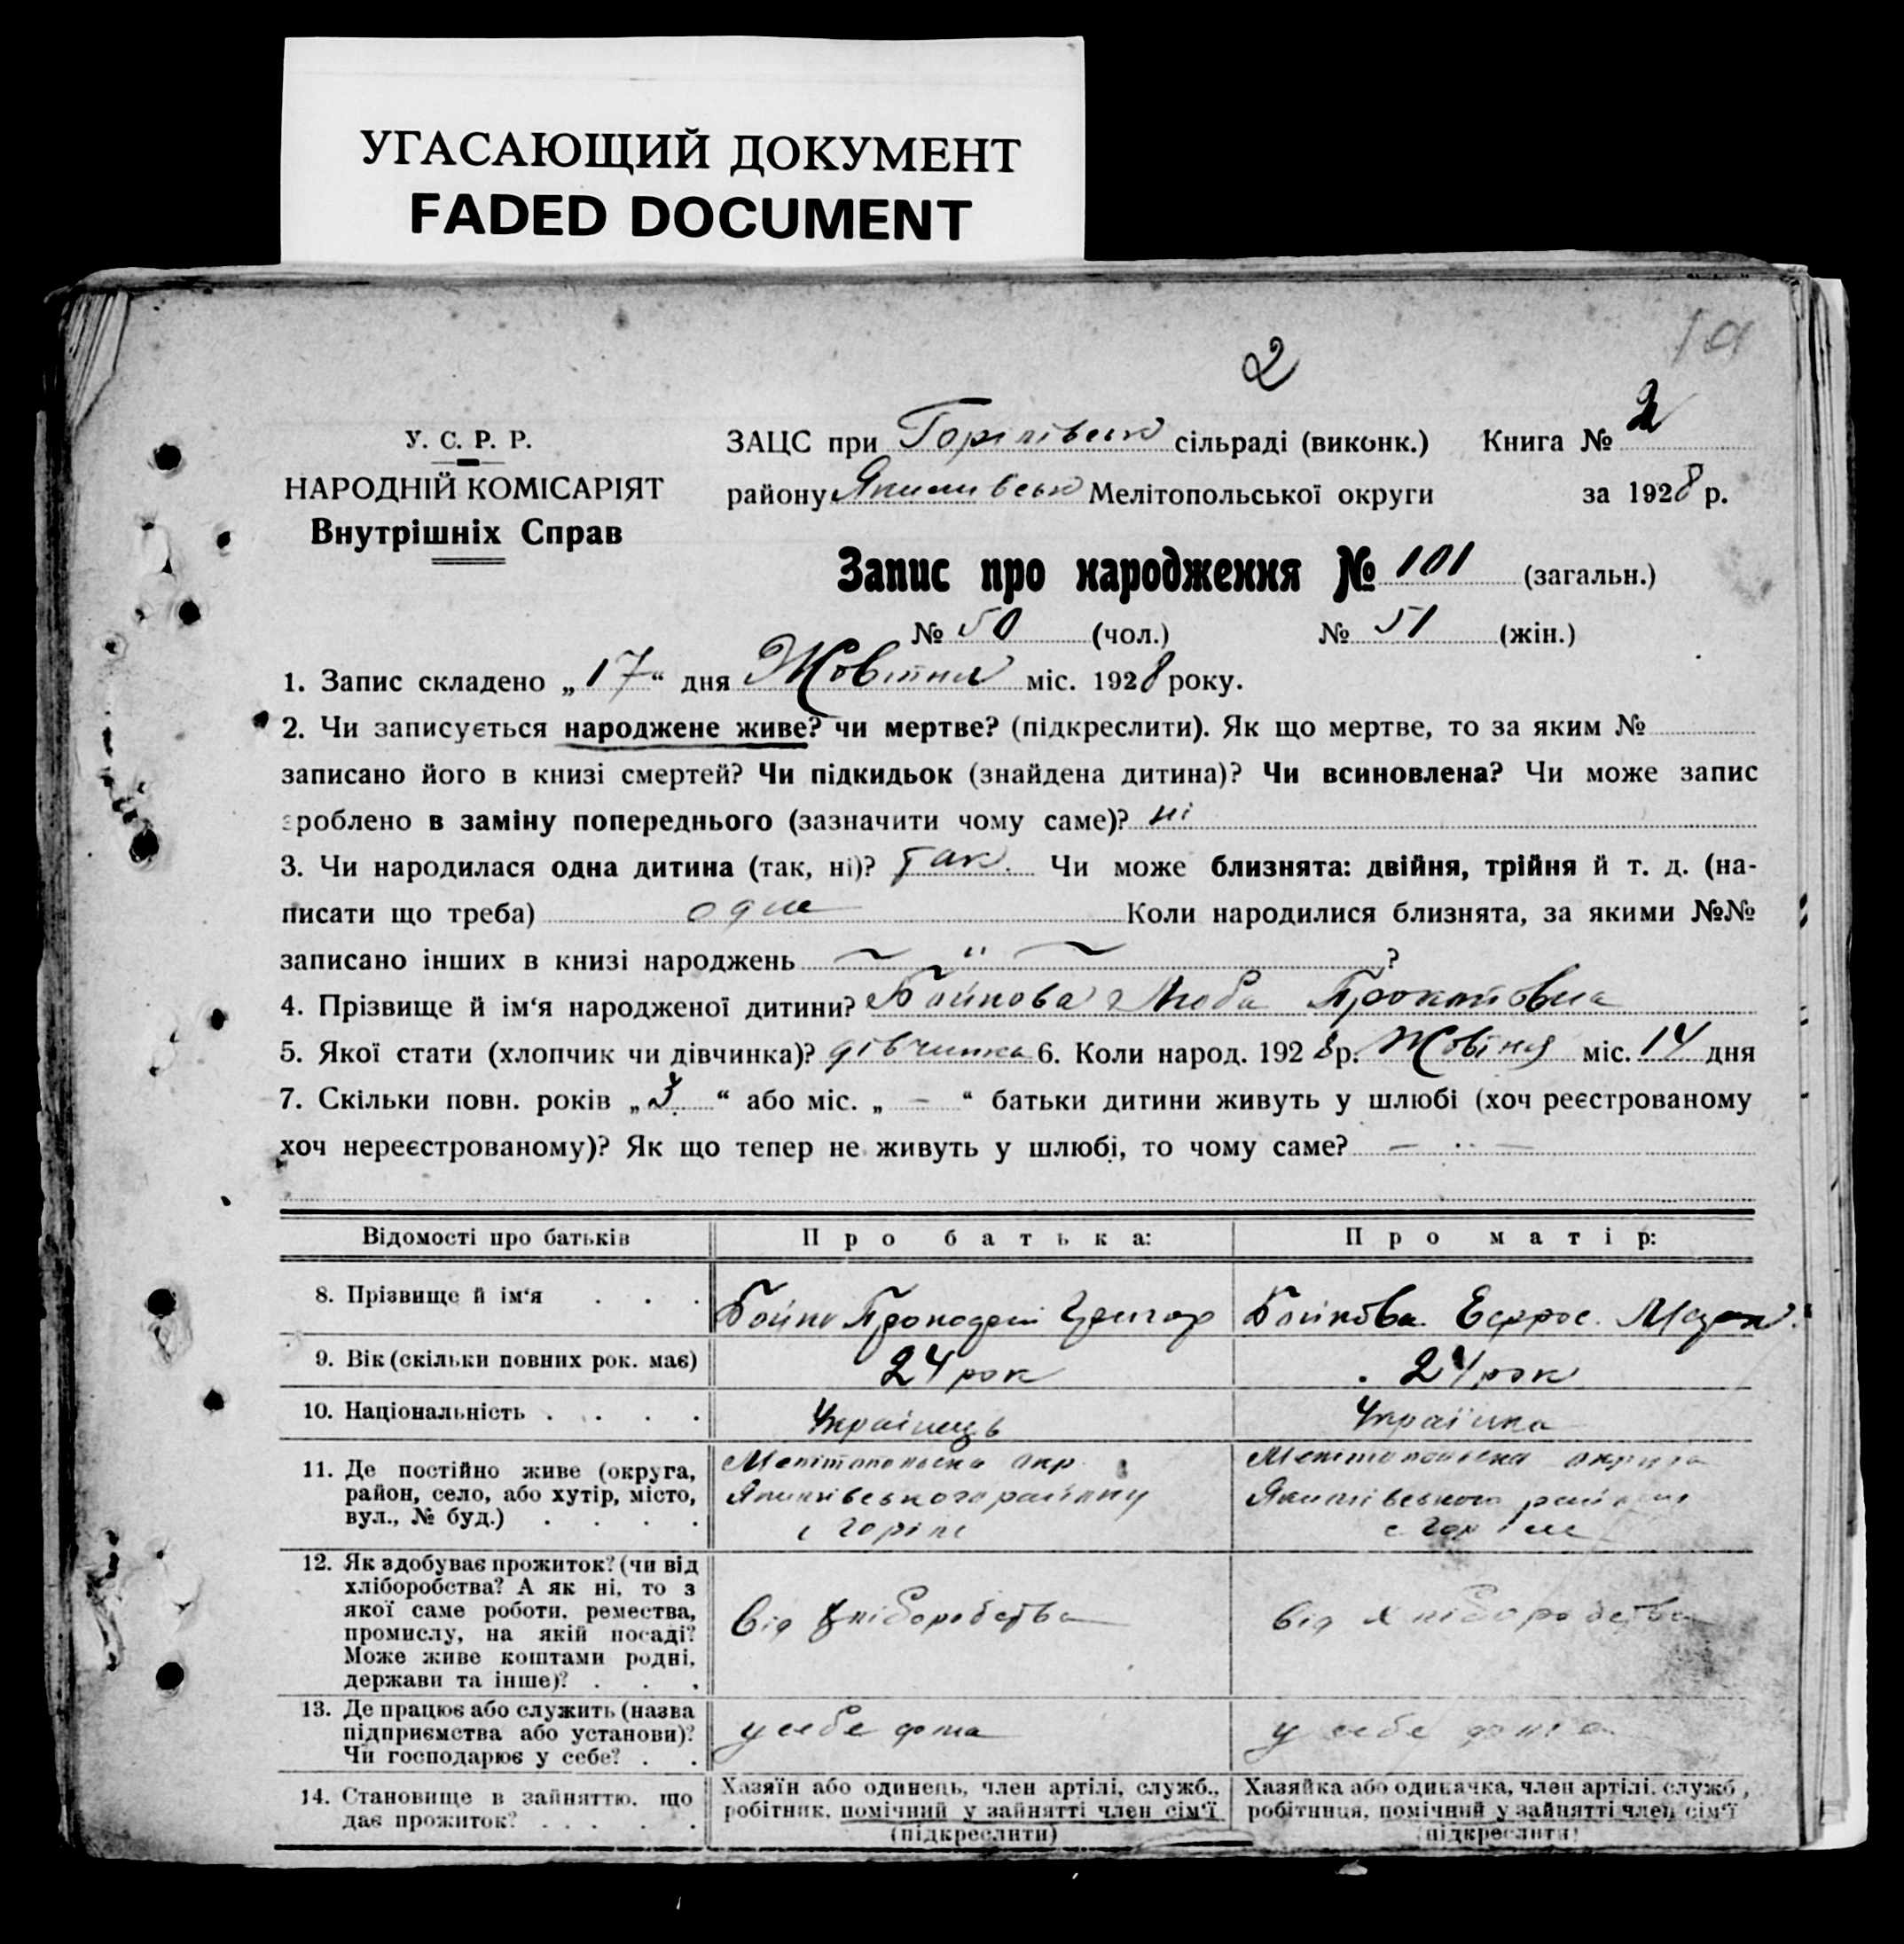 УГАСАЮЩИЙ ДОКУМЕНТ
FADED DOCUMENT
2
У. С. Р. Р.
НАРОДНІЙ КОМІСАРІЯТ
Внутрішніх Справ
ЗАЦС при Горілівськ сільраді (виконк.) Книга № 2
району Якимівськ Мелітопольської округи за 1928 р.
Запис про народження № 101 (загальн.)
№ 50 (чол.) № 51 (жін.)
1. Запис складено „17“ дня Жовтня міс. 1928 року.
2. Чи записується народжене живе? чи мертве? (підкреслити). Як що мертве, то за яким №
записано його в книзі смертей? Чи підкидьок (знайдена дитина)? Чи всиновлена? Чи може запис
зроблено в заміну попереднього (зазначити чому саме)? ні
3. Чи народилася одна дитина (так, ні)? так. Чи може близнята: двійня, трійня й т. д. (на-
писати що треба) одне Коли народилися близнята, за якими №№
записано інших в книзі народжень ~ " ~ ?
4. Прізвище й ім‘я народженої дитини? Бойкова Люба
5. Якої стати (хлопчик чи дівчинка)? дівчинка 6. Коли народ. 1928 р. Жовтня міс. 14 дня
7. Скільки повн. років „3“ або міс. „ – “ батьки дитини живуть у шлюбі (хоч реєстрованому
хоч нереєстрованому)? Як що тепер не живуть у шлюбі, то чому саме? — ·· —
Відомості про батьків Про батька: Про матір:
8. Прізвище й ім‘я . . . Бойко Григор Бойкова Ефрос.
9. Вік (скільки повних рок. має) 24 рок 24 рок
10. Національність . . . . Українець Українка
11. Де постійно живе (округа, Мелітопольска окр. Мелітопольска округа
район, село, або хутір, місто, Якимівського району Якимівського району
вул., № буд.) . . . . с Горіле с. Горіле
12. Як здобуває прожиток? (чи від
хліборобства? А як ні, то з
якої саме роботи. ремества, від хліборобства від хліборобства
промислу, на якій посаді?
Може живе коштами родні,
держави та інше)? . . .
13. Де працює або служить (назва
підприємства або установи)? у себе дома у себе дома
Чи господарює у себе? . .
14. Становище в зайняттю, що Хазяїн або одинець, член артілі, служб., Хазяйка або одиначка, член артілі, служб.,
дає прожиток? . . . . . робітник, помічний у зайнятті член сім‘ї робітниця, помічний у зайнятті член сім‘ї
(підкреслити) (підкреслити)